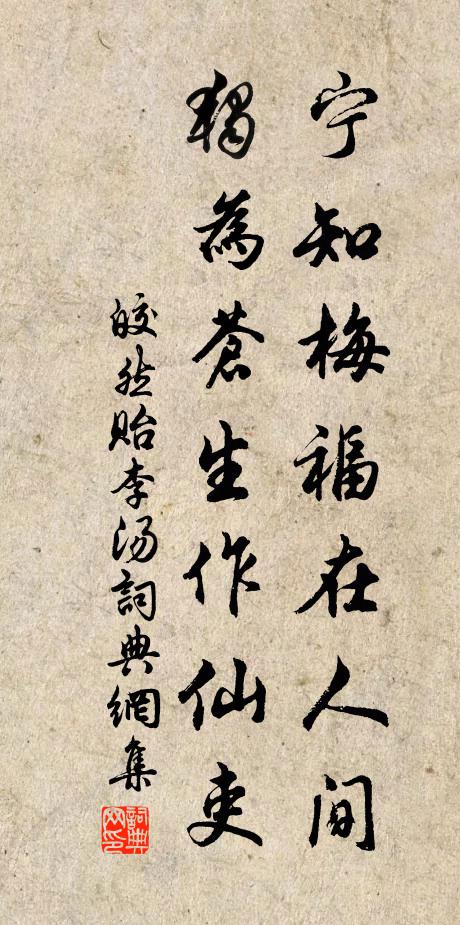 宁知梅福在人间
獨為蒼生作仙吏
皎然貽李汤詞典網集
詞典
网印